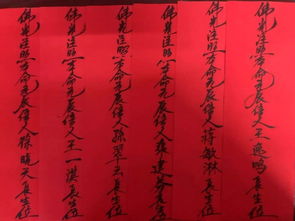 佛光注照本命元辰信人王逸鸣长生位
佛光注照本命元辰信人蒋敏淋长生位
佛光注照本命元辰信人建长生位
佛光注照本命元辰信人孙翠云长生位
佛光注照本命元辰信人王一淇长生位
佛光注照本命元辰信人陈晓天长生位